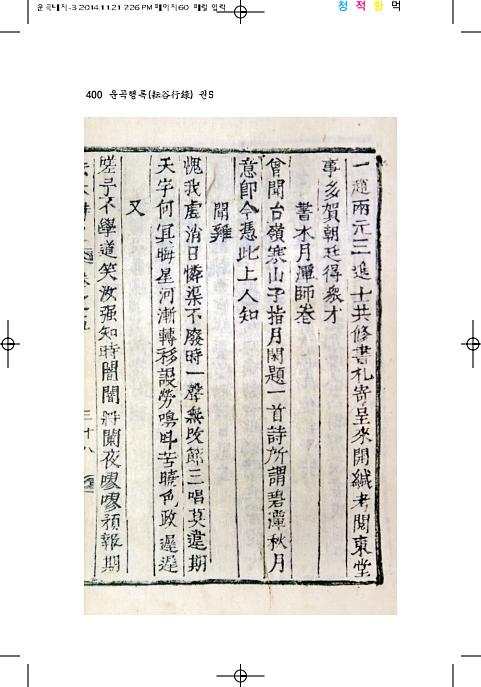 운곡대지-3 2014.11.21 7:26 PM 페이지60 매킬 입력
청 적 황 먹
400 운곡행록(耘谷行錄) 권5
一趙兩元三進士共修書札寄呈來開緘考閱東堂
事多賀朝廷得衆才
書水月潭師卷
曾聞台嶺寒山子指月閑題一首詩所謂碧潭秋月
意卽今憑此上人知
聞雞
愧我虛消日憐渠不廢時一聲無改節三唱莫違期
天字何其晦星河漸轉移設勞鳴且苦曉色政遲遲
又
嗟予不學道笑汝强知時闇闇將闌夜嘐嘐預報期
卷之五
三十八